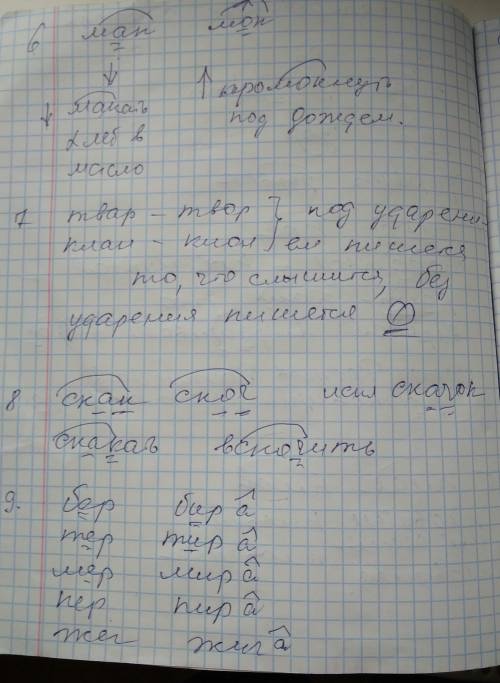 6 мак мок
макать промокнуть
хлеб в под дождем.
масло
7 твар – твор } под ударени-
клан – клон } ем пишется
то, что слышится, без
ударения пишется О
8 скак скоч искл скачок
скакать вскочить
9. бер бир а
тер тир а
мер мир а
пер пир а
жег жиг а